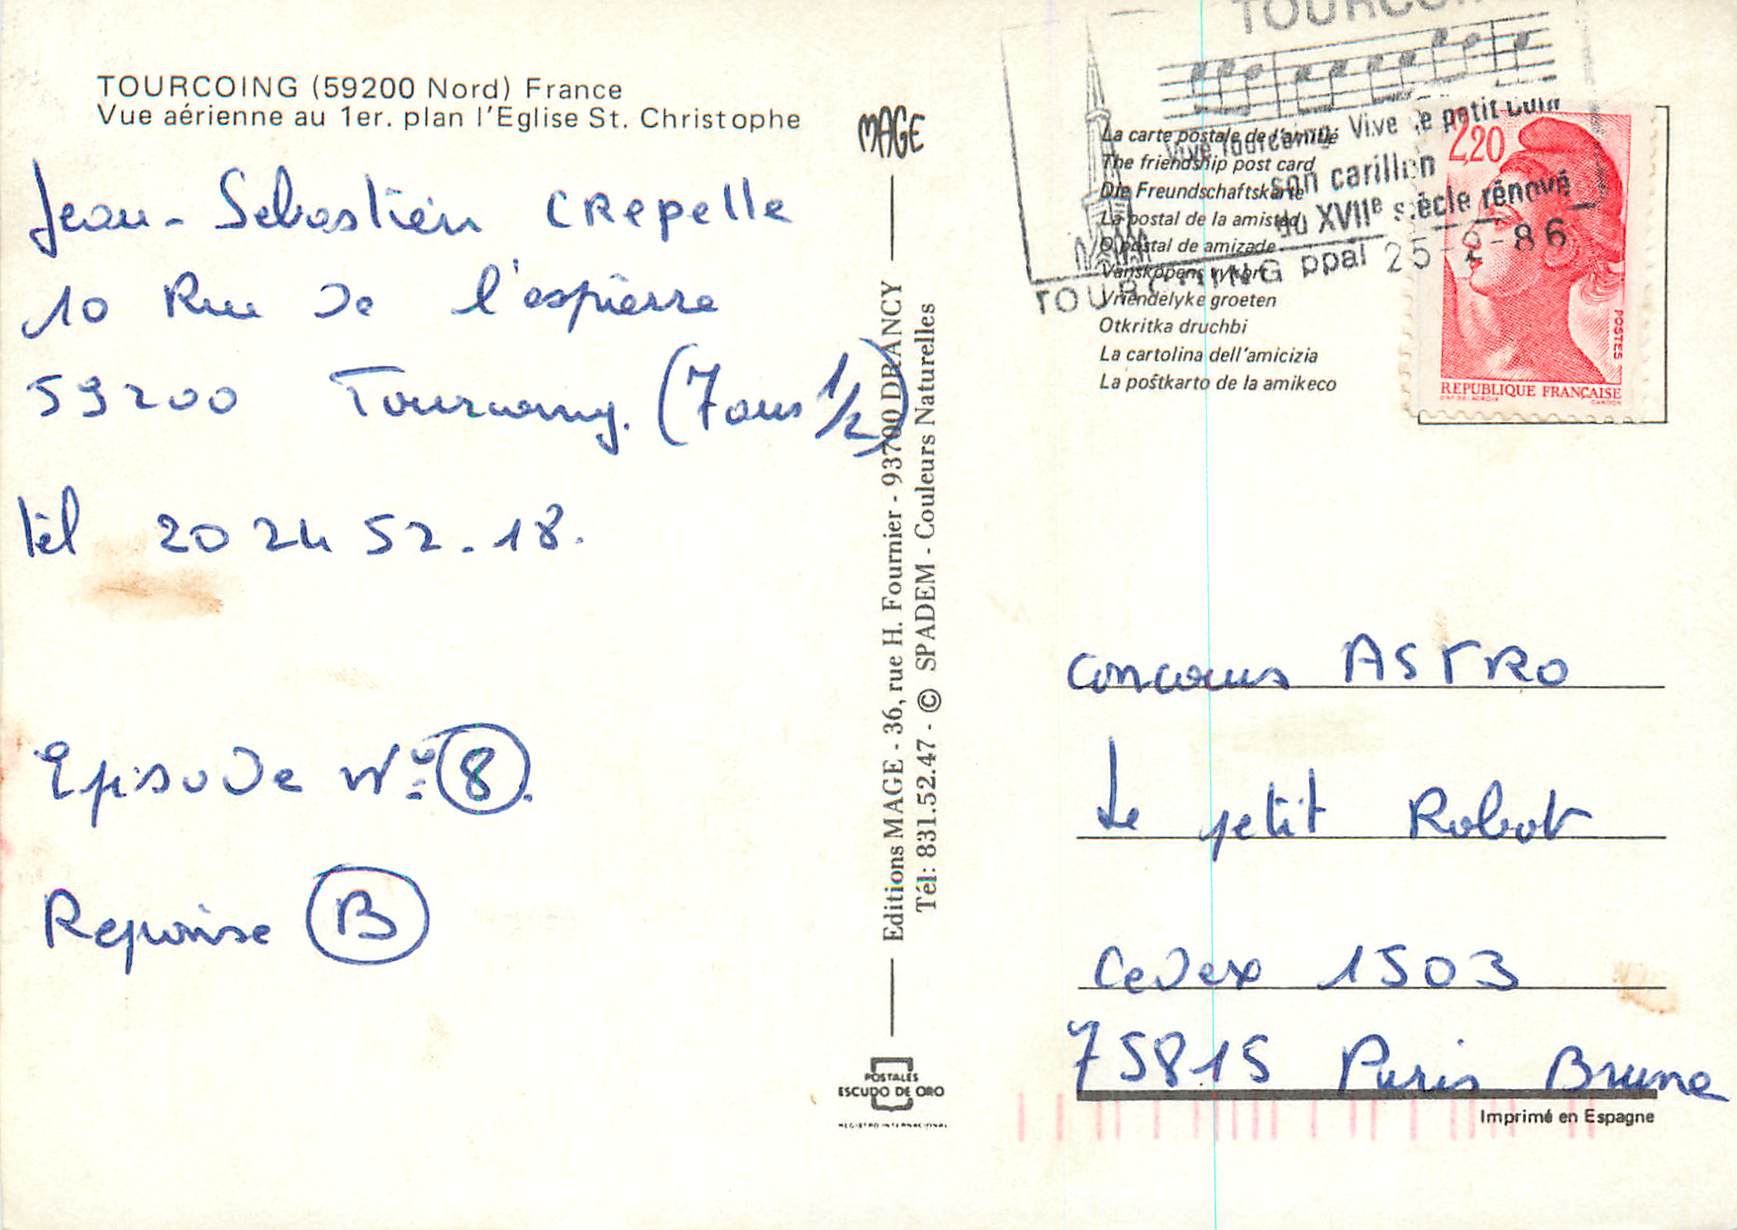 TOURCOING (59200 Nord) France
Vue aérienne au 1er. plan l'Eglise St. Christophe
Jean-Sebastien CRepelle
10 Rue De l'espierre
59200 Tourcoing. (7 ans 1/2)
tél 20 24 52.18.
Episode N° 8.
Reponse B
MAGE
Editions MAGE - 36, rue H. Fournier - 93700 DRANCY
Tél: 831.52.47 - © SPADEM - Couleurs Naturelles
POSTALES
ESCUDO DE ORO
REGISTRO INTERNACIONAL
TOURCOING
Vive Tourcoing Vive le petit Quin
son carillon
du XVIIe siècle rénové
TOURCOING ppal 25-2-86
La carte postale de l'amitié
The friendship post card
Die Freundschaftskarte
La postal de la amistad
O postal de amizade
Vänskapens vykort
Vriendelyke groeten
Otkritka druchbi
La cartolina dell'amicizia
La poŝtkarto de la amikeco
2,20
POSTES
REPUBLIQUE FRANÇAISE
concours ASTRO
Le petit Robot
CeDex 1503
75815 Paris Brune
Imprimé en Espagne